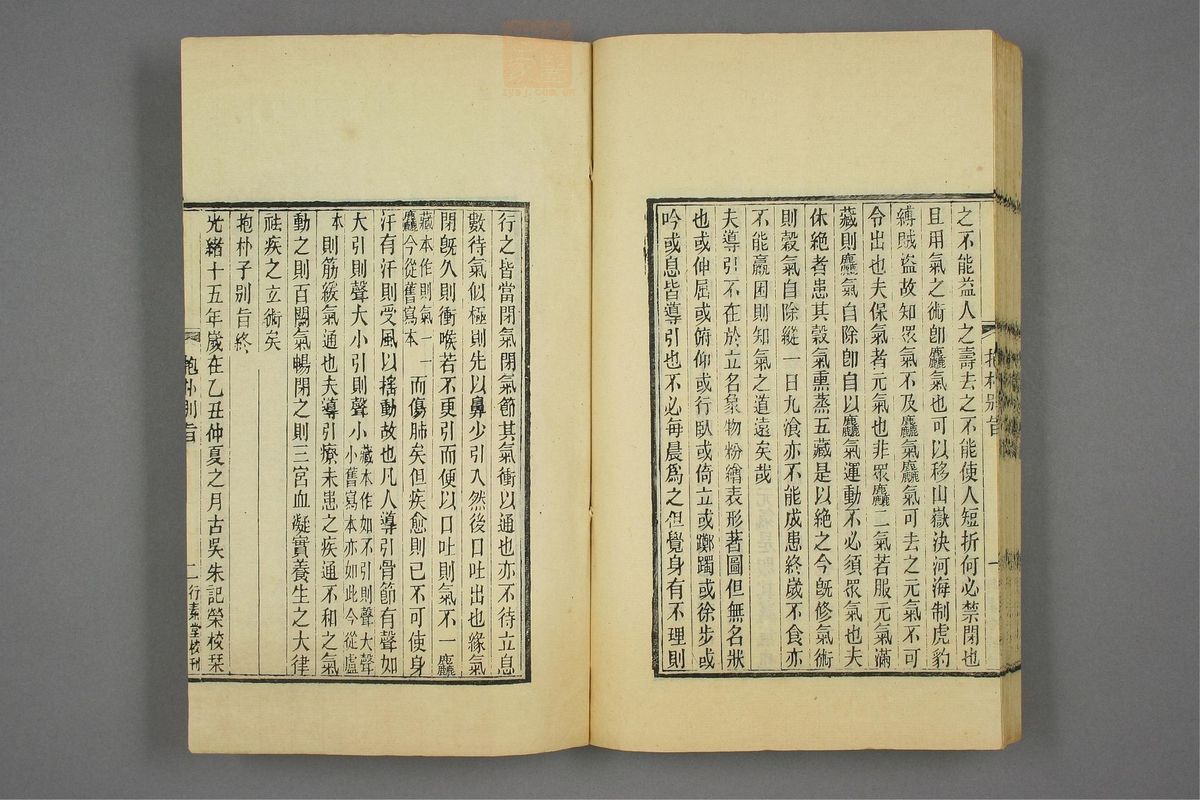 之不能益人之壽去之不能使人短折何必禁閉也
且用氣之術卽麤氣也可以移山嶽決河海制虎豹
縛賊盜故知眾氣不及麤氣麤氣可去之元氣不可
令出也夫保氣者元氣也非眾麤二氣若服元氣滿
藏則麤氣自除卽自以麤氣運動不必須眾氣也夫
休絕者患其穀氣熏蒸五藏是以絕之今旣修氣術
則穀氣自除縱一日九飡亦不能成患終歲不食亦
不能羸困則知氣之道遠矣哉
夫導引不在於立名象物粉繪表形著圖但無名狀
也或伸屈或俯仰或行臥或倚立或躑躅或徐步或
吟或息皆導引也不必每晨爲之但覺身有不理則
抱朴別旨
一
行之皆當閉氣閉氣節其氣衝以通也亦不待立息
數待氣似極則先以鼻少引入然後口吐出也緣氣
閉旣久則衝喉若不更引而便以口吐則氣不一麤
藏本作則氣一一麤今從舊寫本而傷肺矣但疾愈則已不可使身
汗有汗則受風以搖動故也凡人導引骨節有聲如
大引則聲大小引則聲小藏本作如不引則聲大聲小舊寫本亦如此今從盧
本則筋緩氣通也夫導引療未患之疾通不和之氣
動之則百關氣暢閉之則三宮血凝實養生之大律
祛疾之立術矣
抱朴子別旨終
光緒十五年歲在乙丑仲夏之月古吳朱記榮校栞
抱朴別旨
二
行素堂校刊